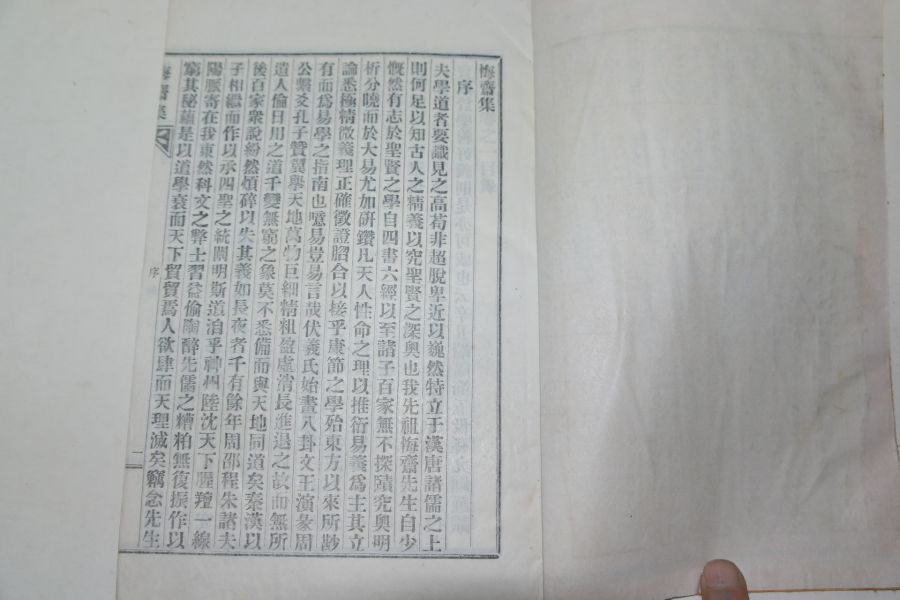 悔齋集
序
夫學道者要識見之高苟非超脫卑近以巍然特立于漢唐諸儒之上
則何足以知古人之精義以究聖賢之深奧也我先祖悔齋先生自少
慨然有志於聖賢之學自四書六經以至諸子百家無不探賾究奧明
析分曉而於大易尤加硏鑽凡天人性命之理以推衍易義爲主其立
論悉極精微義理正確徵證䐇合以接乎康節之學殆東方以來所尠
有而爲易學之指南也噫易豈易言哉伏羲氏始畫八卦文王演彖周
公繫爻孔子贊翼擧天地萬物巨細精粗盈虛消長進退之故而無所
遺人倫日用之道千變無窮之象莫不悉備而與天地同道矣秦漢以
後百家衆說紛然煩碎以失其義如長夜者千有餘年周邵程朱諸夫
子相繼而作以承四聖之統闡明斯道洎乎神州陸沈天下腥羶一線
陽脈寄在我東然科文之弊士習益偸陶醉先儒之糟粕無復振作以
窮其秘蘊是以道學衰而天下貿貿焉人欲肆而天理滅矣竊念先生
悔齋集
序
一